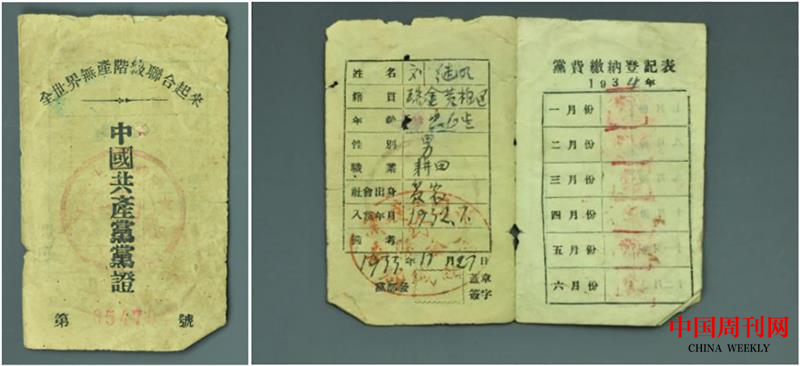 全世界無產階級聯合起來
中國共產黨黨證
第 號
姓名 刘
籍貫 瑞金黄柏區
年齡
性別 男
職業 耕田
社會出身 贫农
入黨年月 1932.7.
備考
1933年11月27日
黨部發 蓋章
簽字
黨費繳納登記表
1934年
一月份
二月份
三月份
四月份
五月份
六月份
中国周刊网
CHINA WEEKLY